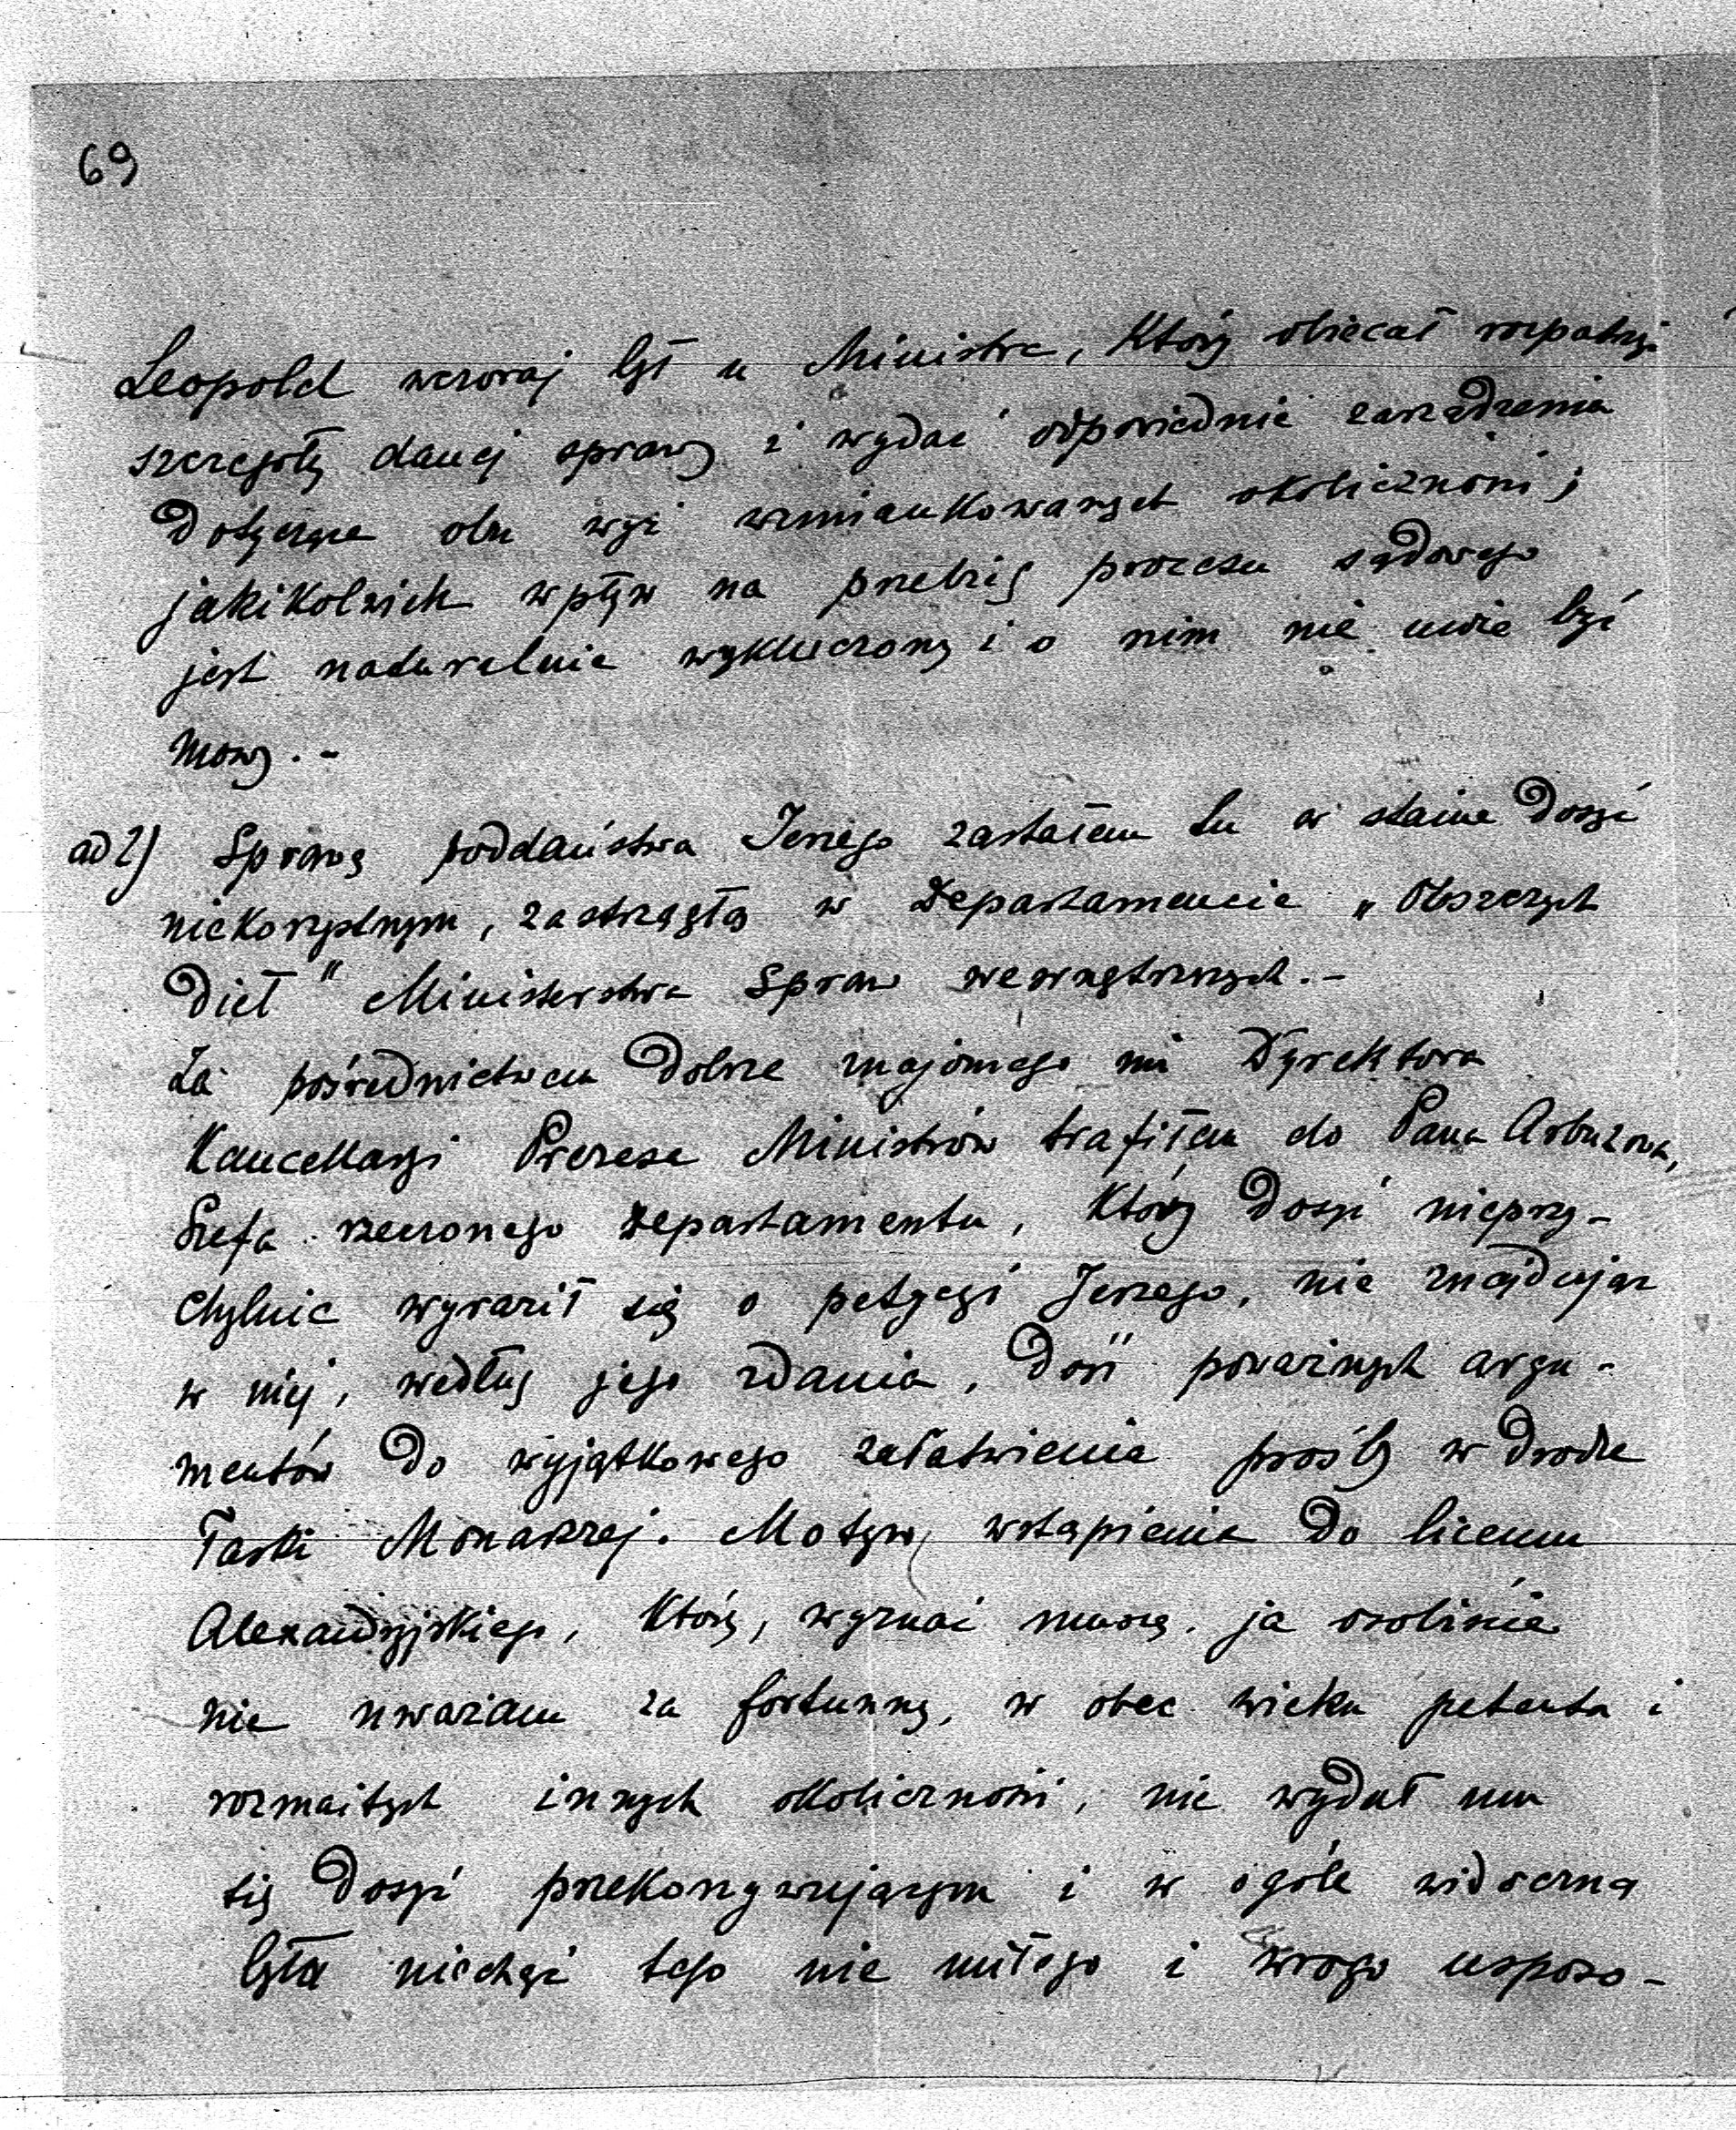 69
Leopold wczoraj był u Ministra, który obiecał rozpatrzyć
szczegóły danej sprawy i wydać odpowiednie zarządzenia
dotyczące obu wyż wzmiankowanych okoliczności;
jakikolwiek wpływ na przebieg procesu sądowego
jest naturalnie wykluczony i o nim nie może być
mowy. -
ad 2) Sprawę poddaństwa Jerzego zastałem tu w stanie dosyć
niekorzystnym, zastrzągłą w Departamencie „Obszczych
Dieł" Ministerstwa Spraw wewnętrznych. -
Za pośrednictwem dobrze znajomego mi Dyrektora
Kancellaryi Prezesa Ministrów trafiłem do Pana Arbuzowa,
Szefa rzeczonego Departamentu, który dosyć nieprzy-
chylnie wyraził się o petycyi Jerzego, nie znajdując
w niej, według jego zdania, dość poważnych argu-
mentów do wyjątkowego załatwienia prośby w drodze
Łaski Monarszej. Motyw wstąpienia do liceum
Alexandryjskiego, który, wyznać muszę, ja osobiście
nie uważam za fortunny, w obec wieku petenta i
rozmaitych innych okoliczności, nie wydał mu
się dosyć przekonywującym i w ogóle widoczną
była niechęć tego nie miłego i wrogo usposo-